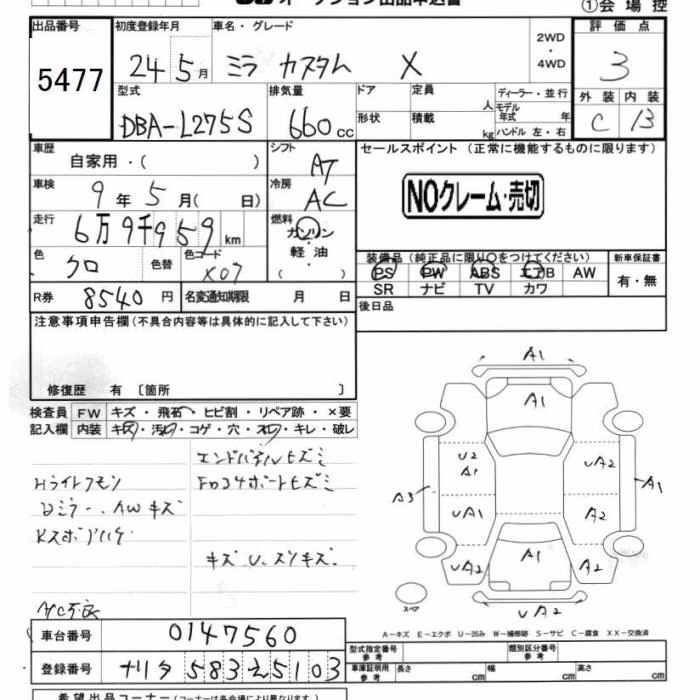 オークション出品申込書
①会場控
出品番号 初度登録年月 車名・グレード 2WD・4WD 評価点
5477 24年5月 ミラ カスタム X 3
型式 排気量 ドア 定員 人 ディーラー・並行 外装 内装
DBA-L275S 660cc 形状 積載 kg モデル年式 年 C B
ハンドル 左・右
車歴 自家用・( ) シフト AT セールスポイント (正常に機能するものに限ります)
車検 9年5月( 日) 冷房 AC NOクレーム・売切
走行 6万9千959km 燃料 ガソリン・軽油( )
色 クロ 色替 色コード X07 装備品 (純正品に限り○をつけてください) 新車保証書
PS PW ABS エアB AW 有・無
SR ナビ TV カワ
R券 8540円 名変通知期限 月 日 後日品
注意事項申告欄(不具合内容等は具体的に記入して下さい)
修復歴 有〔箇所 〕
検査員 FW キズ・飛石・ヒビ割・リペア跡・×要
記入欄 内装 キズ・汚れ・コゲ・穴・スレ・キレ・破レ
エンドパネルヒズミ
Hライトクモリ
AWキズ
A/C不良
キズ U. スリキズ.
A1
A1
U2
A1
UA2
A3
A1
UA1
A2
UA2
A1
A2
スペア
UA2
A-キズ E-エクボ U-凹み W-補修跡 S-サビ C-腐食 XX-交換済
車台番号 0147560
登録番号
型式指定番号 参考 類別区分番号 参考
車庫証明用 参考 長さ cm 幅 cm 高さ cm
希望出品コーナー(コーナーは各会場により異なります)